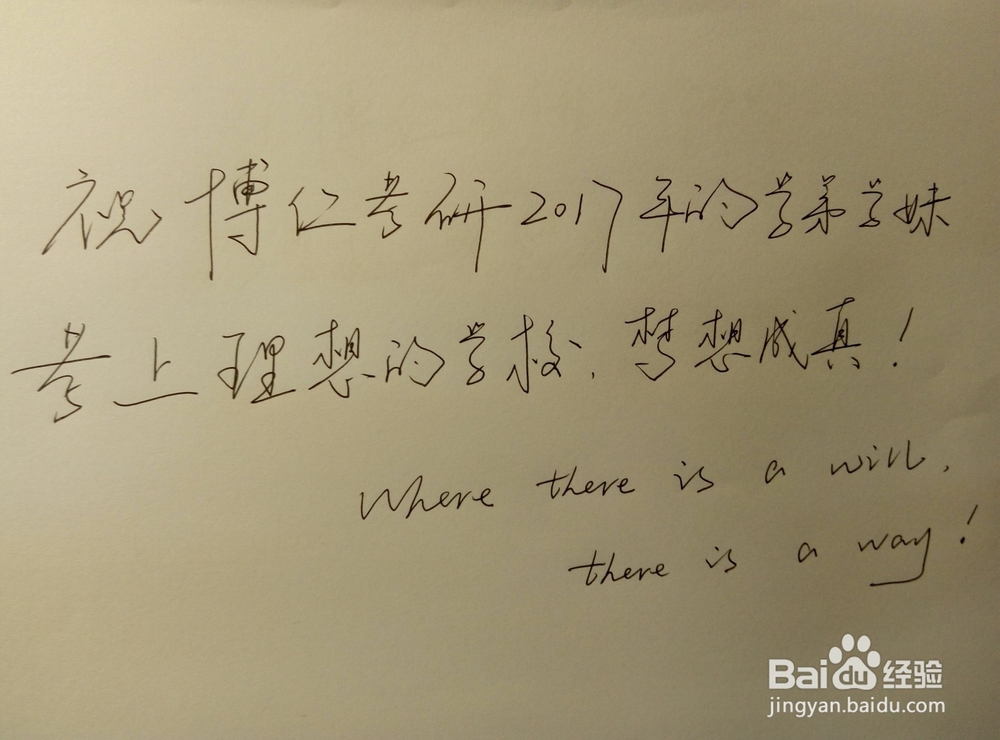 祝博仁考研2017年的学弟学妹
考上理想的学校,梦想成真!
Where there is a will,
there is a way!
Bai du 经验
jingyan.baidu.com